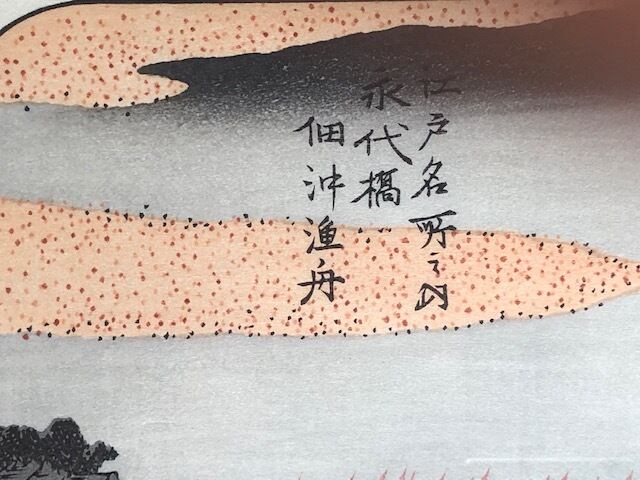 江戸名所之内
永代橋
佃沖漁舟